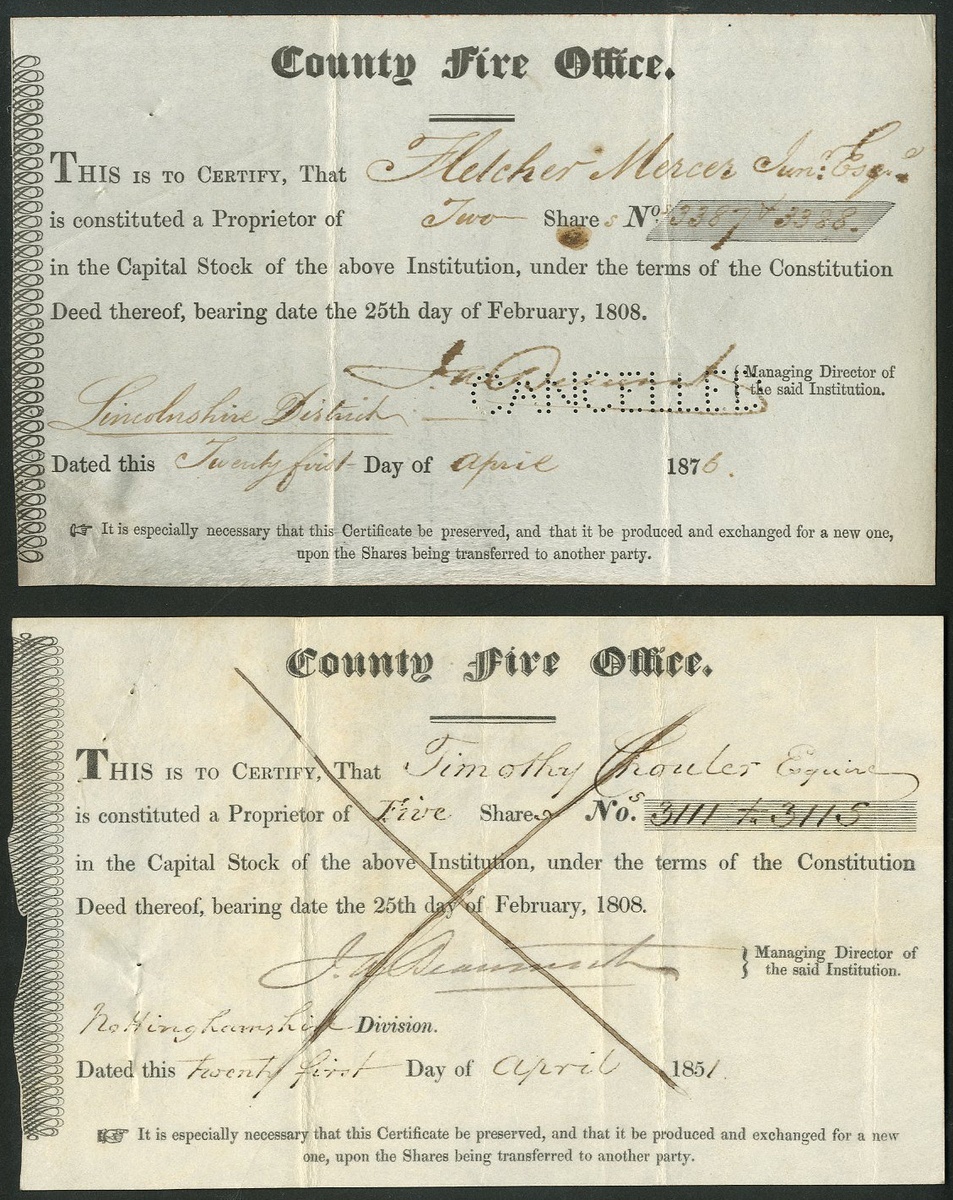 County Fire Office.
THIS IS TO CERTIFY, That Fletcher Mercer Junr. Esqre.
is constituted a Proprietor of Two Shares Nos. 3387 & 3388.
in the Capital Stock of the above Institution, under the terms of the Constitution
Deed thereof, bearing date the 25th day of February, 1808.
Managing Director of
the said Institution.
CANCELLED
Lincolnshire District
Dated this Twenty first Day of April 1876.
It is especially necessary that this Certificate be preserved, and that it be produced and exchanged for a new one,
upon the Shares being transferred to another party.
County Fire Office.
THIS IS TO CERTIFY, That Timothy Chouler Esquire
is constituted a Proprietor of Five Shares Nos. 3111 to 3115
in the Capital Stock of the above Institution, under the terms of the Constitution
Deed thereof, bearing date the 25th day of February, 1808.
J. A. Beaumont
Managing Director of
the said Institution.
Nottinghamshire Division.
Dated this twenty first Day of April 1851.
It is especially necessary that this Certificate be preserved, and that it be produced and exchanged for a new
one, upon the Shares being transferred to another party.